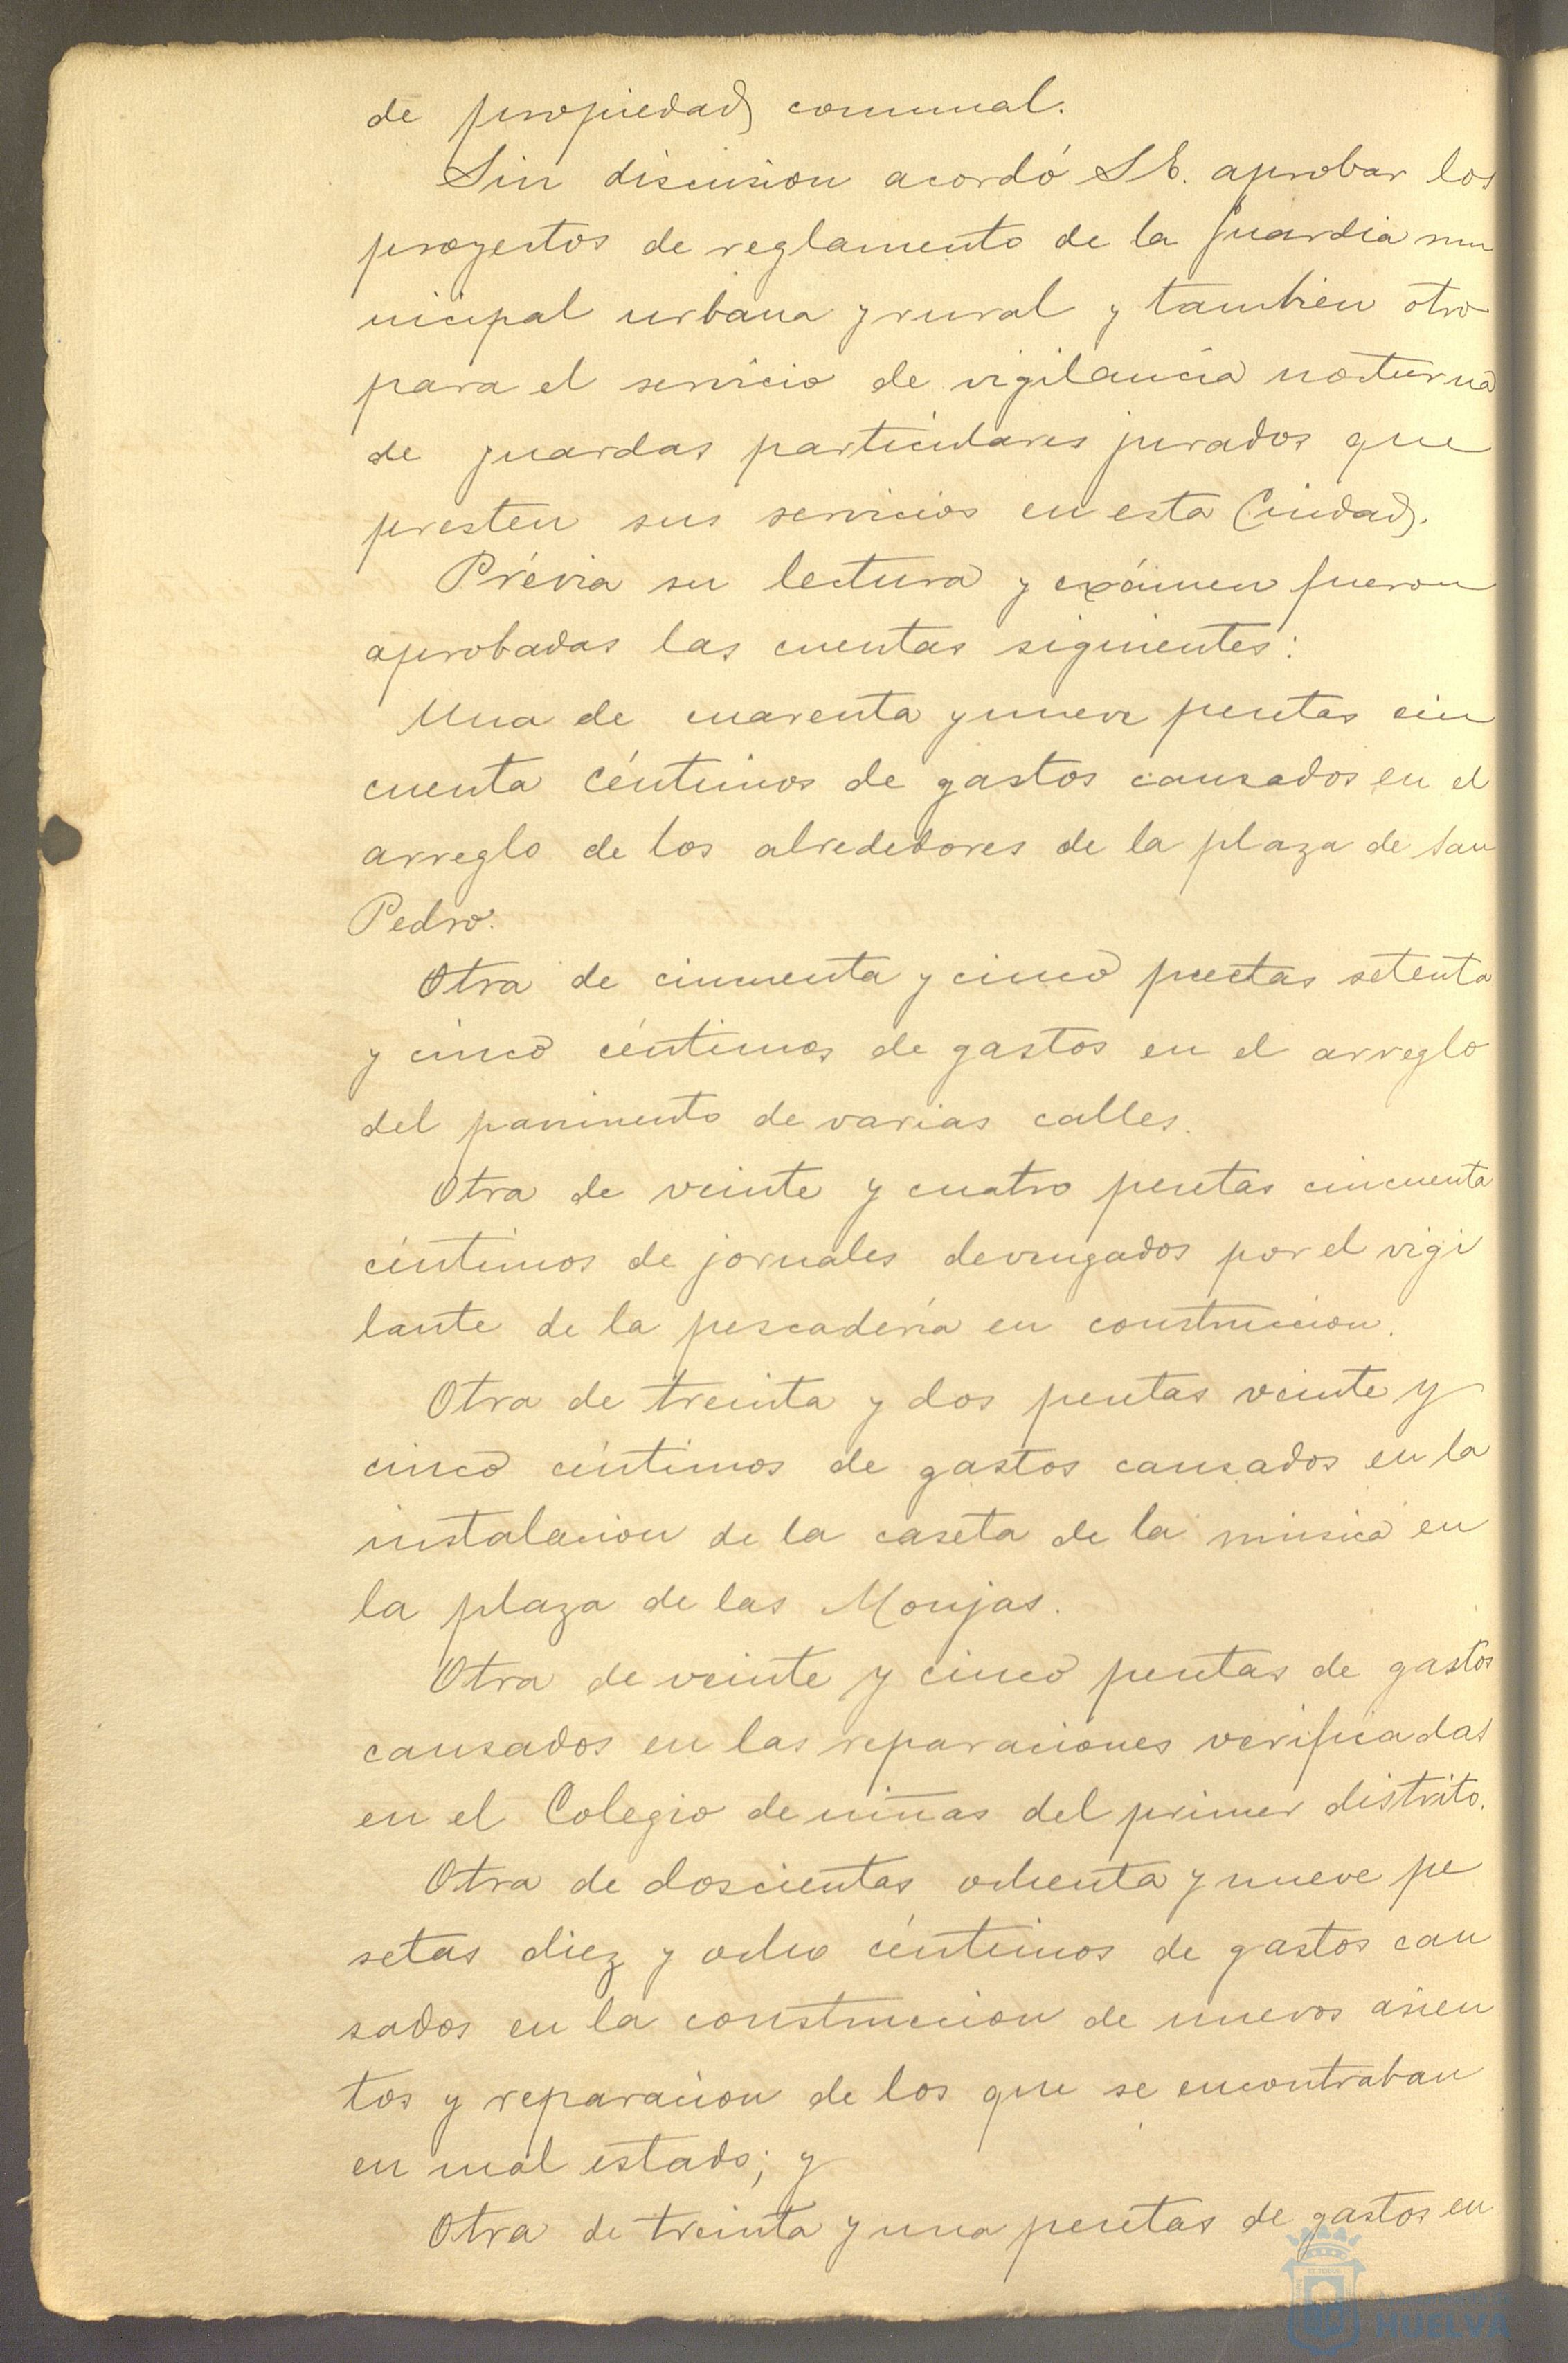 de propiedad comunal.
Sin discusion acordó S.E. aprobar los
proyectos de reglamento de la Guardia mu
nicipal urbana y rural y tambien otro
para el servicio de vigilancia nocturna
de guardas particulares jurados que
presten sus servicios en esta Ciudad.
Prévia su lectura y exámen fueron
aprobadas las cuentas siguientes:
Una de cuarenta y nueve pesetas cin
cuenta céntimos de gastos causados en el
arreglo de los alrededores de la plaza de San
Pedro.
Otra de cincuenta y cinco pesetas setenta
y cinco céntimos de gastos en el arreglo
del pavimento de varias calles.
Otra de veinte y cuatro pesetas cincuenta
céntimos de jornales devengados por el vigi
lante de la pescadería en construccion.
Otra de treinta y dos pesetas veinte y
cinco céntimos de gastos causados en la
instalacion de la caseta de la música en
la plaza de las Monjas.
Otra de veinte y cinco pesetas de gastos
causados en las reparaciones verificadas
en el Colegio de niñas del primer distrito.
Otra de doscientas ochenta y nueve pe
setas diez y ocho céntimos de gastos cau
sados en la construccion de nuevos asien
tos y reparacion de los que se encontraban
en mal estado; y
Otra de treinta y una pesetas de gastos en
HUELVA